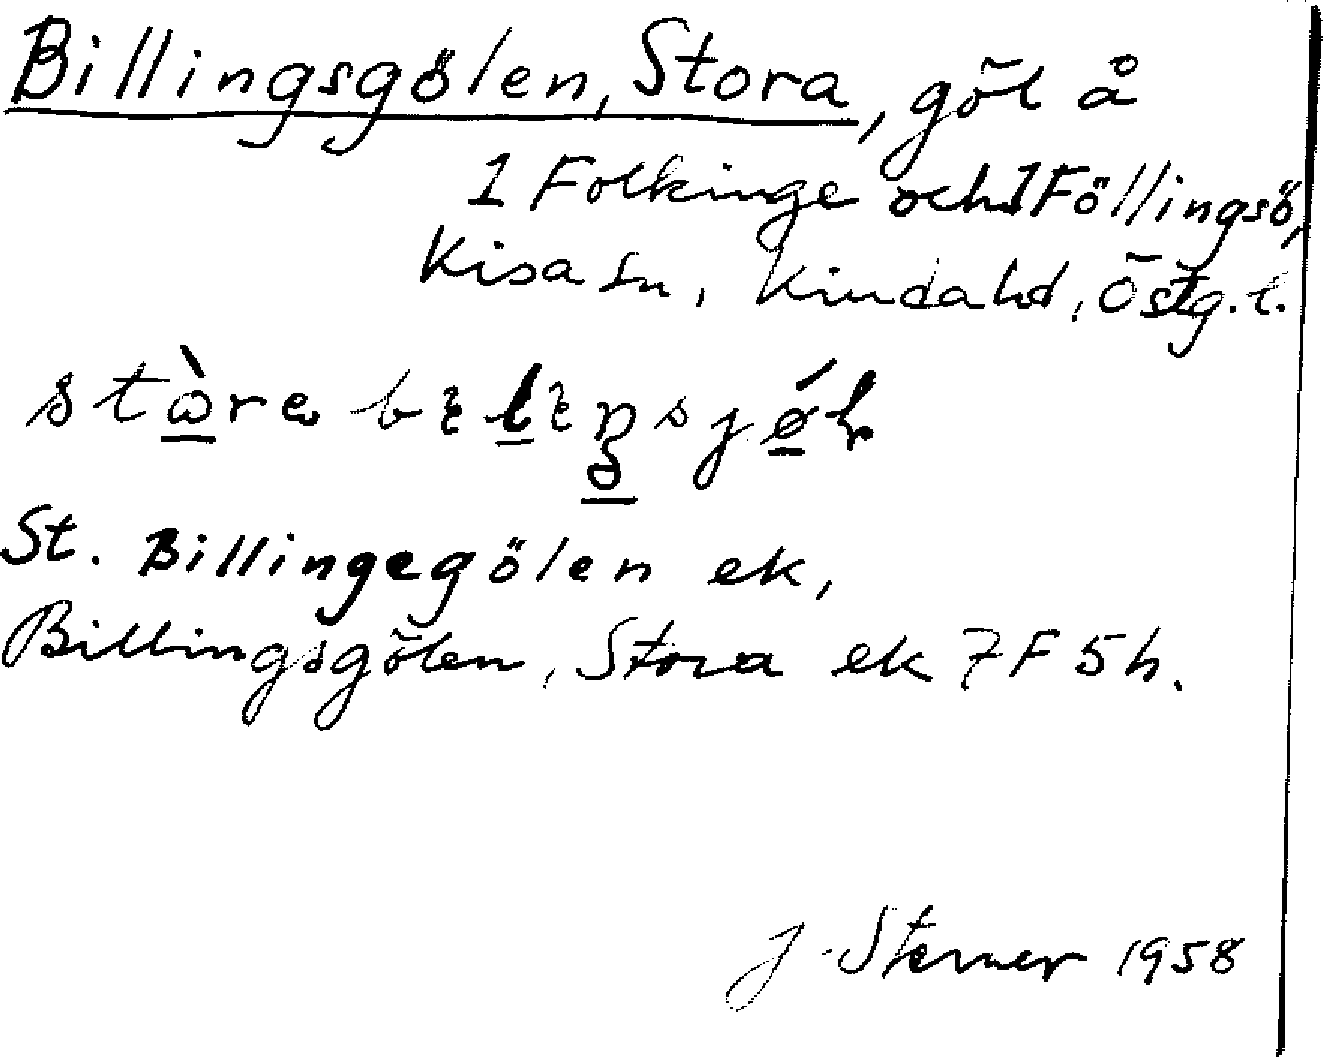 Billingsgölen, Stora, göl å
1 Folkinge och 1 Föllingsö,
Kisa sn, Kinda hd, Östg. l.
St. Billingegölen ek,
Billingsgölen, Stora ek 7F 5h.
J. Sterner 1958